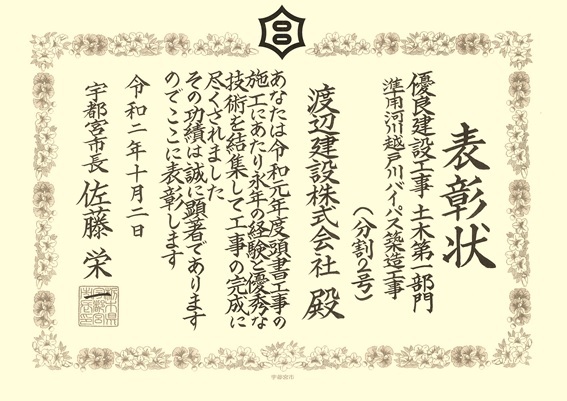 表彰状
優良建設工事 土木第一部門
準用河川越戸川バイパス築造工事
(分割2号)
渡辺建設株式会社 殿
あなたは令和元年度頭書工事の
施工にあたり永年の経験と優秀な
技術を結集して工事の完成に
尽くされました
その功績は誠に顕著であります
のでここに表彰します
令和二年十月二日
宇都宮市長 佐藤栄一
宇都宮市